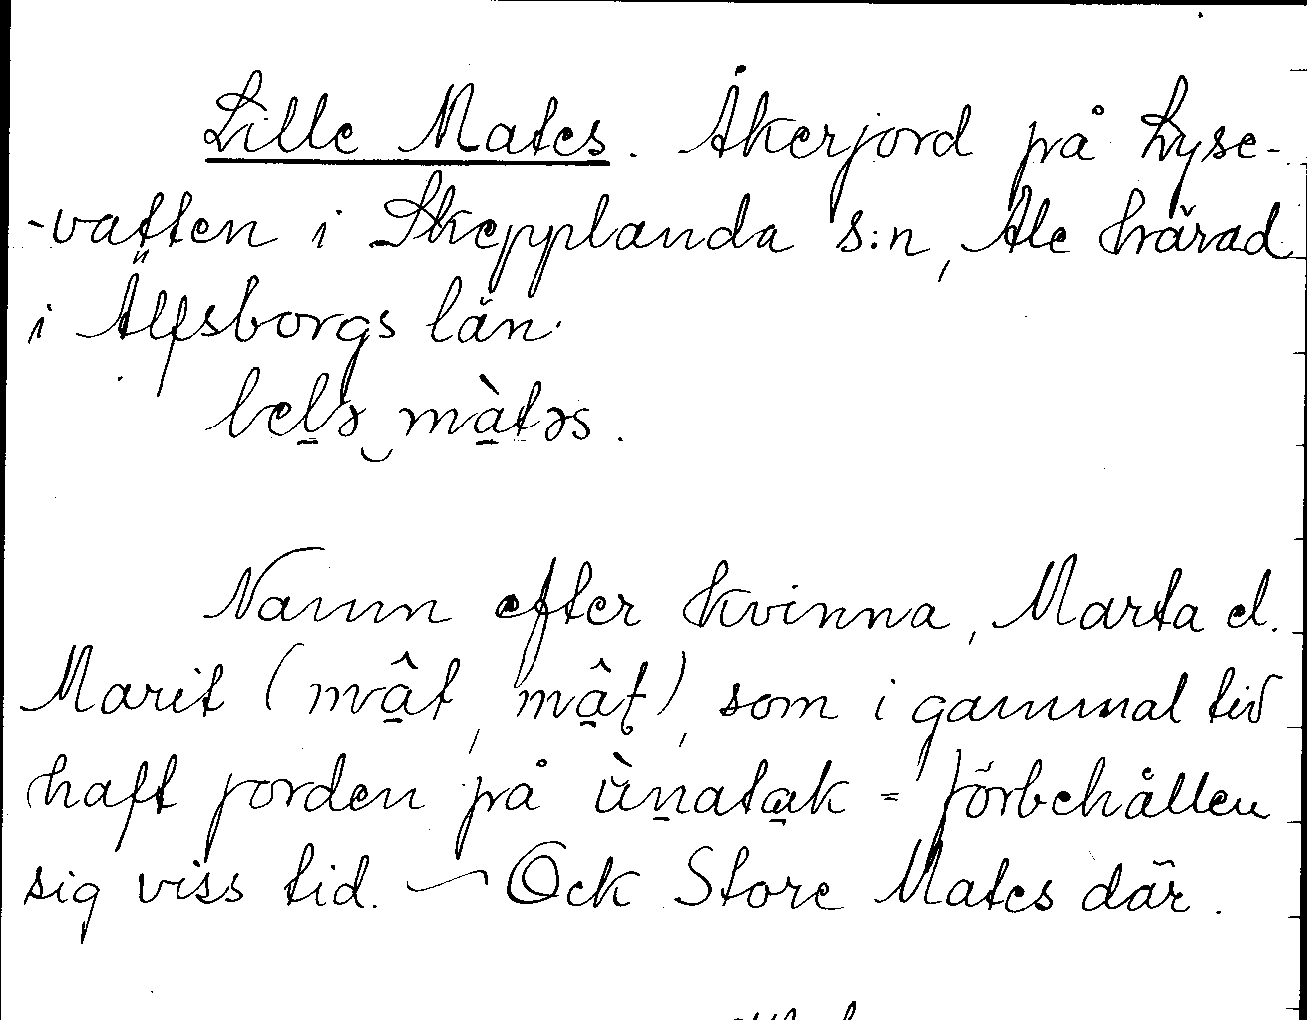 Lille Mates. Åkerjord på Lyse-
-vatten i Skepplanda s:n, Ale härad
i Älfsborgs län.
lel̠ə‿mà̠təs.
Namn efter kvinna, Marta el.
Marit (mâ̠t, mâ̠ʈ), som i gammal tid
haft jorden på ùn̠ata̠k = förbehållen
sig viss tid. – Ock Store Mates där.